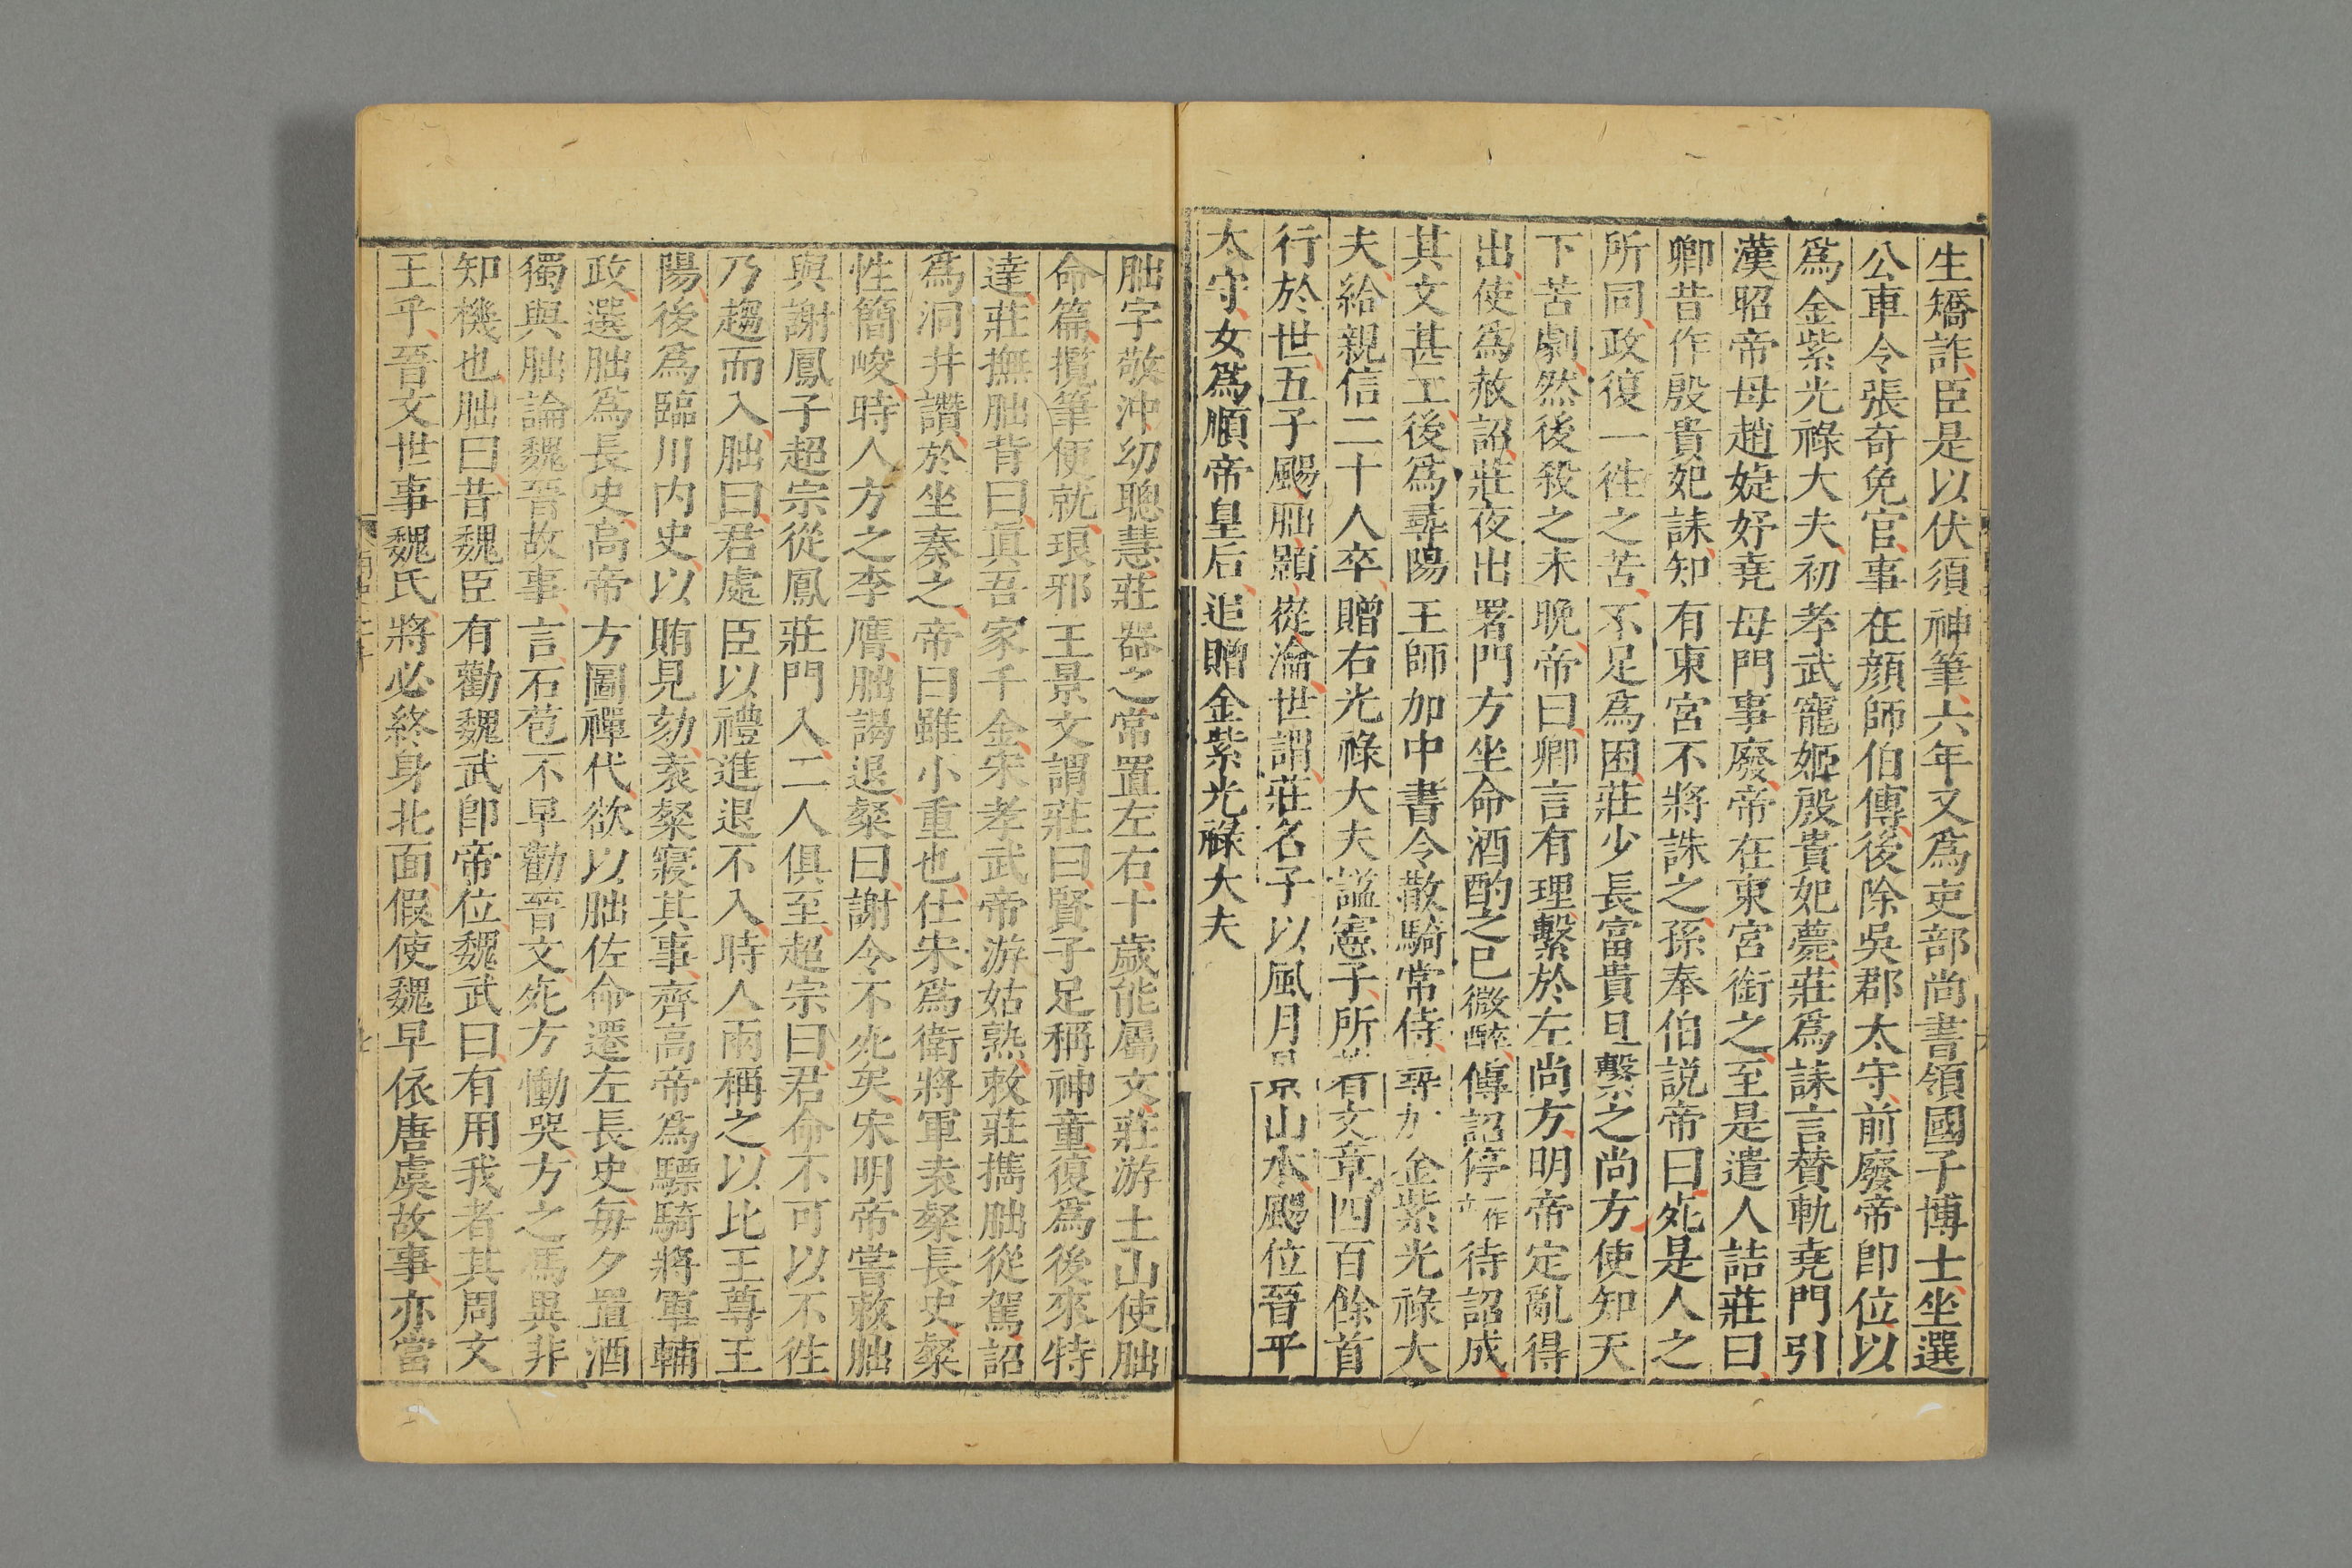 生矯詐臣是以伏須神筆六年又爲吏部尚書領國子博士坐選
公車令張奇免官事在顔師伯傳後除吳郡太守前廢帝卽位以
爲金紫光祿大夫初孝武寵姬殷貴妃薨莊爲誄言贊軌堯門引
漢昭帝母趙婕妤堯母門事廢帝在東宮銜之至是遣人詰莊曰
卿昔作殷貴妃誄知有東宮不將誅之孫奉伯説帝曰死是人之
所同政復一徃之苦不足爲困莊少長富貴且繫之尚方使知天
下苦劇然後殺之未晚帝曰卿言有理繫於左尚方明帝定亂得
出使爲赦詔莊夜出署門方坐命酒酌之已微醉傳詔停一作立待詔成
其文甚工後爲尋陽王師加中書令散騎常侍尋加金紫光祿大
夫給親信二十人卒贈右光祿大夫謚憲子所著文章四百餘首
行於世五子颺朏顥從瀹世謂莊名子以風月景山水颺位晉平
太守女爲順帝皇后追贈金紫光祿大夫
朏字敬沖幼聰慧莊器之常置左右十歲能屬文莊游土山使朏
命篇攬筆便就琅邪王景文謂莊曰賢子足稱神童復爲後來特
達莊撫朏背曰眞吾家千金宋孝武帝游姑熟敕莊攜朏從駕詔
爲洞井讚於坐奏之帝曰雖小重也仕宋爲衛將軍袁粲長史粲
性簡峻時人方之李膺朏謁退粲曰謝令不死矣宋明帝嘗敕朏
與謝鳳子超宗從鳳莊門入二人俱至超宗曰君命不可以不徃
乃趨而入朏曰君處臣以禮進退不入時人兩稱之以比王尊王
陽後爲臨川内史以賄見劾袁粲寢其事齊高帝爲驃騎將軍輔
政選朏爲長史高帝方圖禪代欲以朏佐命遷左長史每夕置酒
獨與朏論魏晉故事言石苞不早勸晉文死方慟哭方之馮異非
知機也朏曰昔魏臣有勸魏武卽帝位魏武曰有用我者其周文
王乎晉文世事魏氏將必終身北面假使魏早依唐虞故事亦當